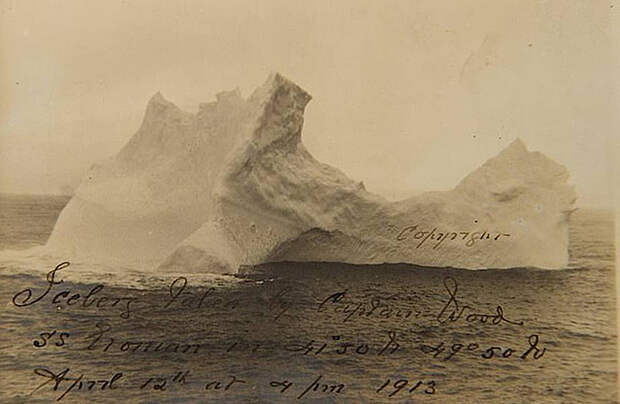 Copyright
Iceberg Taken by Captain Wood
S.S. Etonian in 41°50 W 49°50 N
April 12th at 4 pm 1913